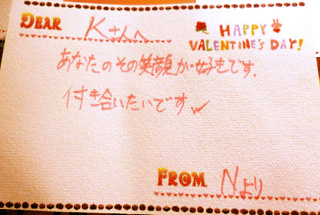 DEAR Kさんへ
HAPPY
VALENTINE'S DAY!
あなたのその笑顔が好きです.
付き合いたいです
FROM Nより